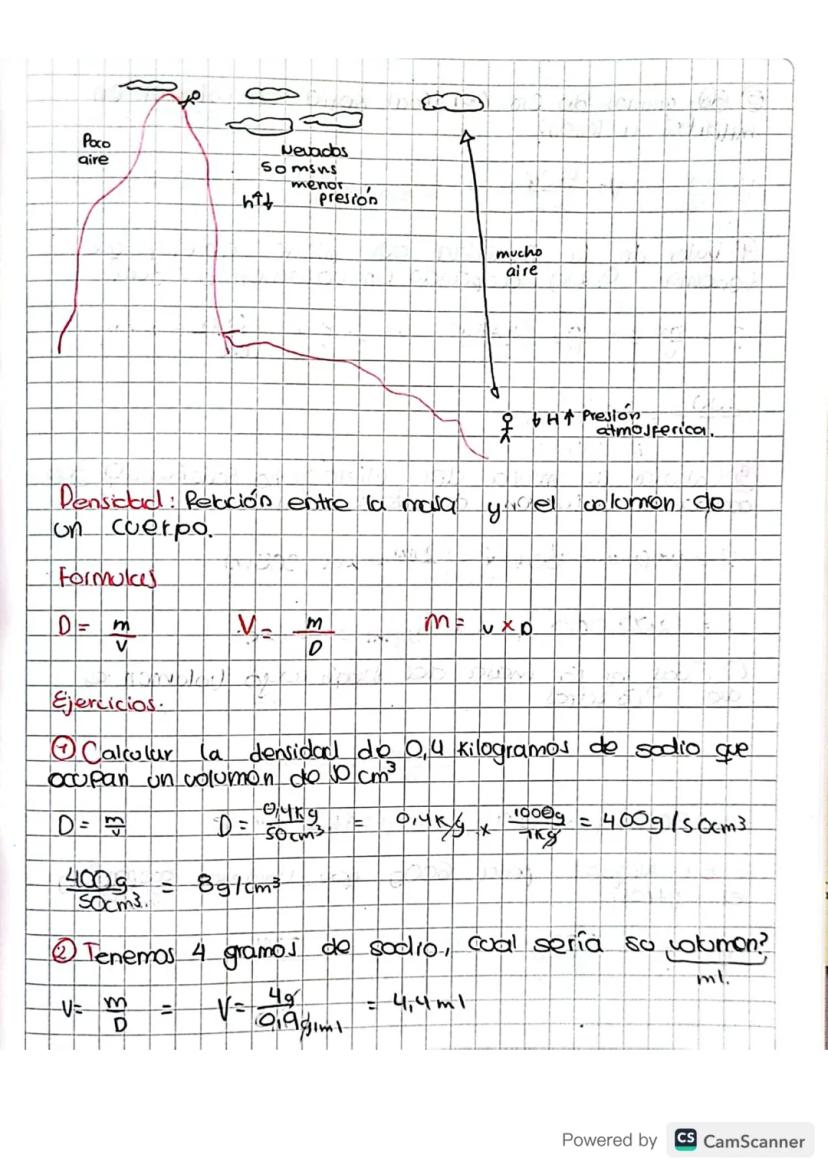 Poco
aire
Nevados
50 msns
menor
h↑↓ presión
mucho
aire
↓ H ↑ Presión
atmosferica.
Densidad: Relación entre la masa y el volumen de
un cuerpo.
Formulas
D = m/V V = m/D m = v x D
Ejercicios.
① Calcular la densidad de 0,4 kilogramos de sodio que
ocupan un volumen de 50 cm³
D = m/v D = 0,4Kg/50cm³ = 0,4K/g x 1000g/1Kg = 400g/50cm3
400g/50cm3. = 8g/cm³
② Tenemos 4 gramos de sodio, cual sería so volumen?
ml.
V= m/D = V= 4g/0,9g/ml = 4,4ml
Powered by CS CamScanner